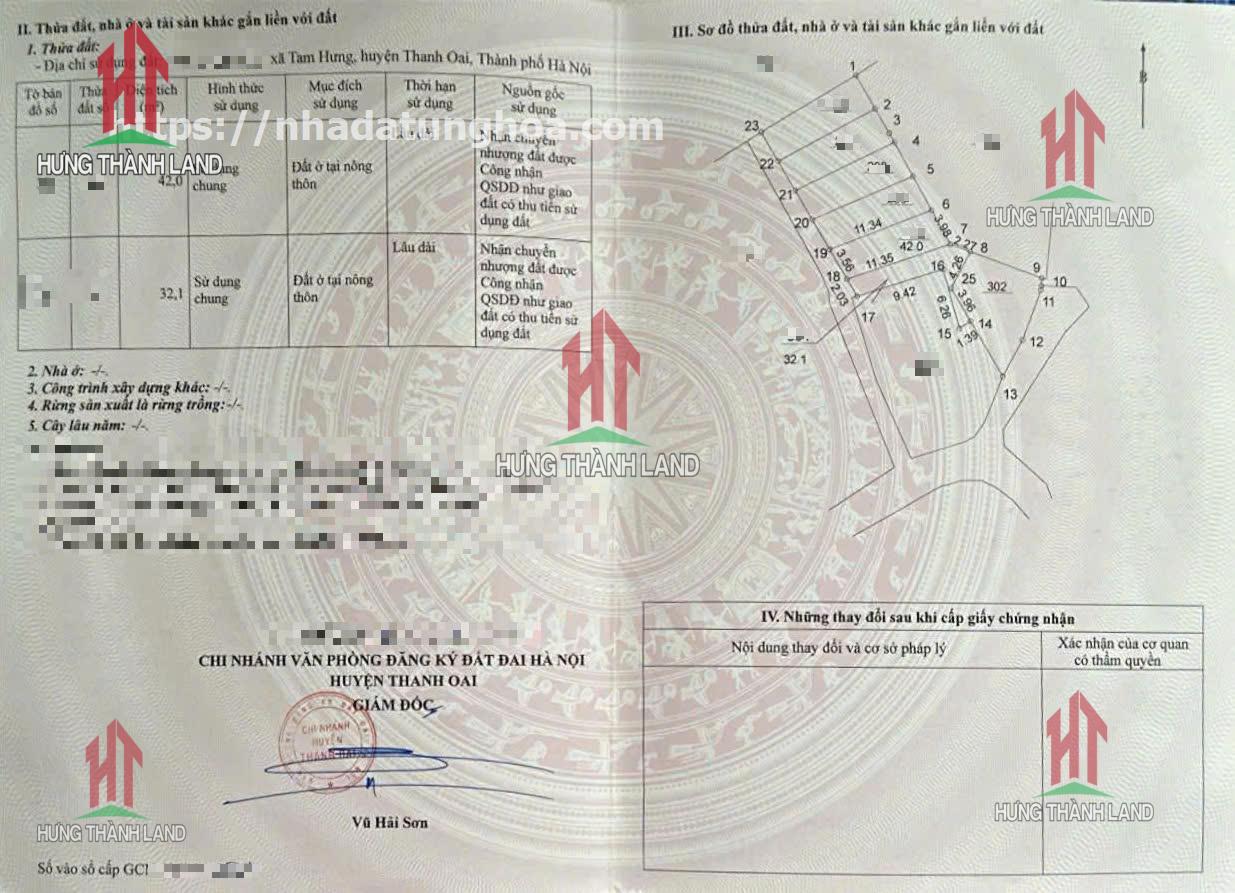 II. Thửa đất, nhà ở và tài sản khác gắn liền với đất
1. Thửa đất:
- Địa chỉ sử dụng đất: xã Tam Hưng, huyện Thanh Oai, Thành phố Hà Nội
Tờ bản đồ số
Thửa đất số
Diện tích (m²)
Hình thức sử dụng
Mục đích sử dụng
Thời hạn sử dụng
Nguồn gốc sử dụng
https://nhadatunghoa.com
HƯNG THÀNH LAND
42,0
chung
Đất ở tại nông
thôn
Nhận chuyển
nhượng đất được
Công nhận
QSDĐ như giao
đất có thu tiền sử
dụng đất
32,1
Sử dụng
chung
Đất ở tại nông
thôn
Lâu dài
Nhận chuyển
nhượng đất được
Công nhận
QSDĐ như giao
đất có thu tiền sử
dụng đất
2. Nhà ở: -/-.
3. Công trình xây dựng khác: -/-.
4. Rừng sản xuất là rừng trồng:-/-.
5. Cây lâu năm: -/-.
HƯNG THÀNH LAND
CHI NHÁNH VĂN PHÒNG ĐĂNG KÝ ĐẤT ĐAI HÀ NỘI
HUYỆN THANH OAI
GIÁM ĐỐC
CHI NHÁNH
HUYỆN
THANH OAI
Vũ Hải Sơn
HƯNG THÀNH LAND
Số vào sổ cấp GCN
III. Sơ đồ thửa đất, nhà ở và tài sản khác gắn liền với đất
B
1
2
23
3
4
22
5
21
6
20
11.34
3.98
7
42.0
2.27
8
19
3.56
11.35
16
4.26
9
18
25
302
10
2.03
9.42
3.96
11
17
6.26
14
15
1.39
12
32.1
13
HƯNG THÀNH LAND
IV. Những thay đổi sau khi cấp giấy chứng nhận
Nội dung thay đổi và cơ sở pháp lý
Xác nhận của cơ quan
có thẩm quyền
HƯNG THÀNH LAND